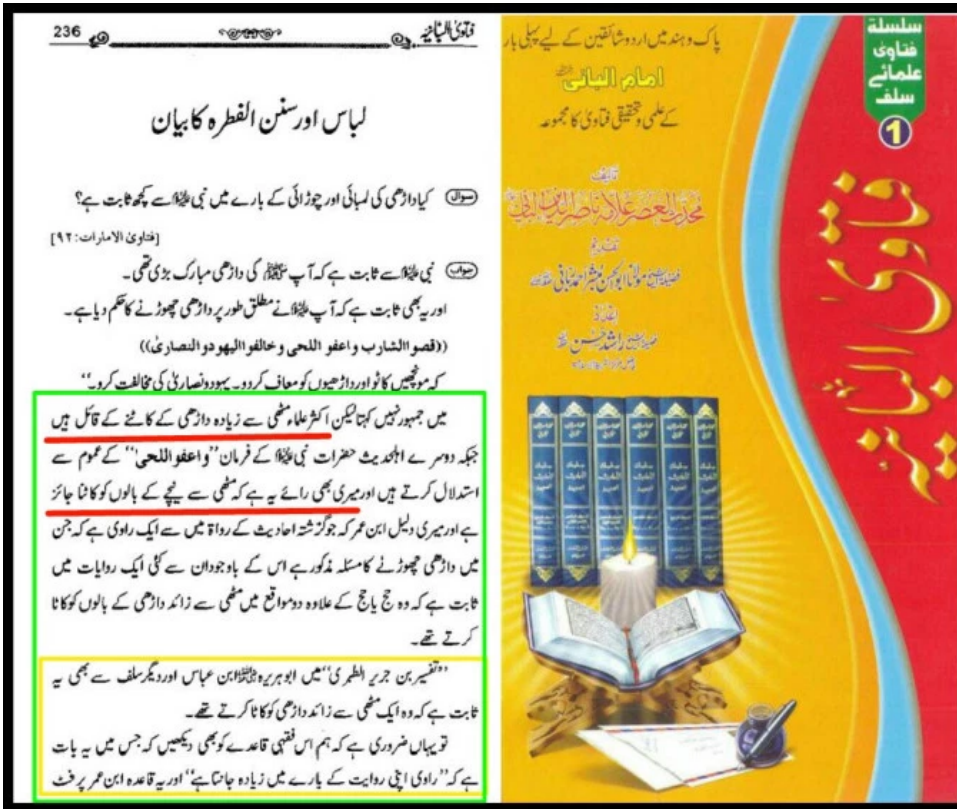 236
فتاویٰ البانیہ
لباس اور سنن الفطرہ کا بیان
سوال کیا داڑھی کی لمبائی اور چوڑائی کے بارے میں نبی ﷺ سے کچھ ثابت ہے؟
[فتاویٰ الامارات: ۹۲]
جواب نبی ﷺ سے ثابت ہے کہ آپ ﷺ کی داڑھی مبارک بڑی تھی۔
اور یہ بھی ثابت ہے کہ آپ ﷺ نے مطلق طور پر داڑھی چھوڑنے کا حکم دیا ہے۔
((قصو االشارب و اعفو اللحى و خالفوا اليهو دو النصارىٰ))
کہ مونچھیں کاٹو اور داڑھیوں کو معاف کردو۔ یہود ونصاریٰ کی مخالفت کرو۔‘‘
میں جمہور نہیں کہتا لیکن اکثر علماء مٹھی سے زیادہ داڑھی کے کاٹنے کے قائل ہیں
جبکہ دوسرے اہلحدیث حضرات نبی ﷺ کے فرمان ’’و اعفو اللحیٰ‘‘ کے عموم سے
استدلال کرتے ہیں اور میری بھی رائے یہ ہے کہ مٹھی سے نیچے کے بالوں کو کاٹنا جائز
ہے اور میری دلیل ابن عمر کہ جو گزشتہ احادیث کے رواۃ میں سے ایک راوی ہے کہ جن
میں داڑھی چھوڑنے کا مسئلہ مذکور ہے اس کے باوجود ان سے کئی ایک روایات میں
ثابت ہے کہ وہ حج یا حج کے علاوہ دو مواقع میں مٹھی سے زائد داڑھی کے بالوں کو کاٹا
کرتے تھے۔
’’تفسیر بن جریر الطبری‘‘ میں ابو ہریرہ ؓ ابن عباس اور دیگر سلف سے بھی یہ
ثابت ہے کہ وہ ایک مٹھی سے زائد داڑھی کو کاٹا کرتے تھے۔
تو یہاں ضروری ہے کہ ہم اس فقہی قاعدے کو بھی دیکھیں کہ جس میں یہ بات
ہے کہ ’’راوی اپنی روایت کے بارے میں زیادہ جانتا ہے‘‘ اور یہ قاعدہ ابن عمر پر فٹ
پاک و ہند میں اردو شائقین کے لیے پہلی بار
امام البانی
کے علمی و تحقیقی فتاویٰ کا مجموعہ
تالیف
محدث العصر علامہ ناصر الدین البانی
تقدیم
مولانا ابو الحسن مبشر احمد ربانی
راشد حسن
سلسلۃ
فتاویٰ
علمائے
سلف
1
فتاویٰ البانیہ